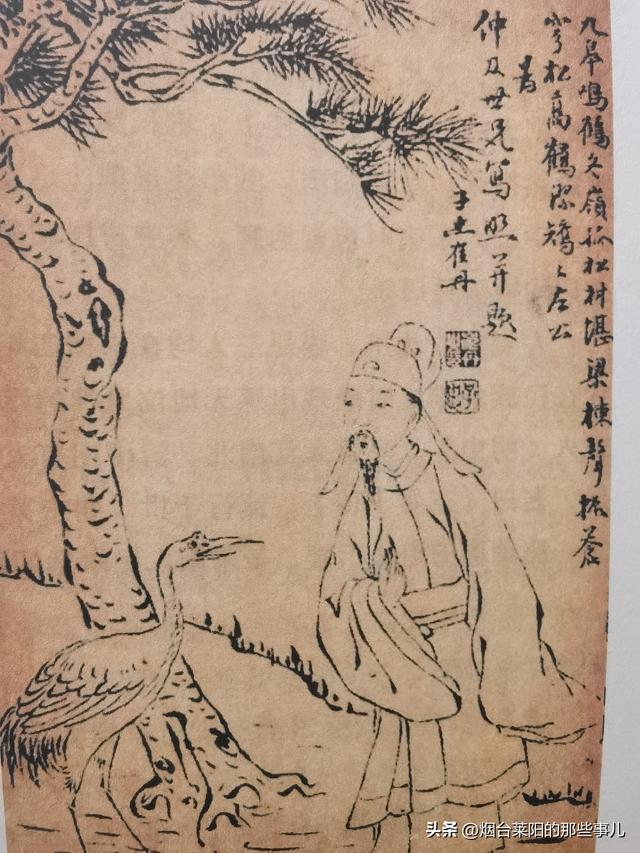 九皋鳴鶴冬嶺孤松材堪梁棟聲振蒼
穹松高鶴潔矯々左公
為
仲及世兄寫照并題
子忠崔丹
头条 @烟台莱阳的那些事儿